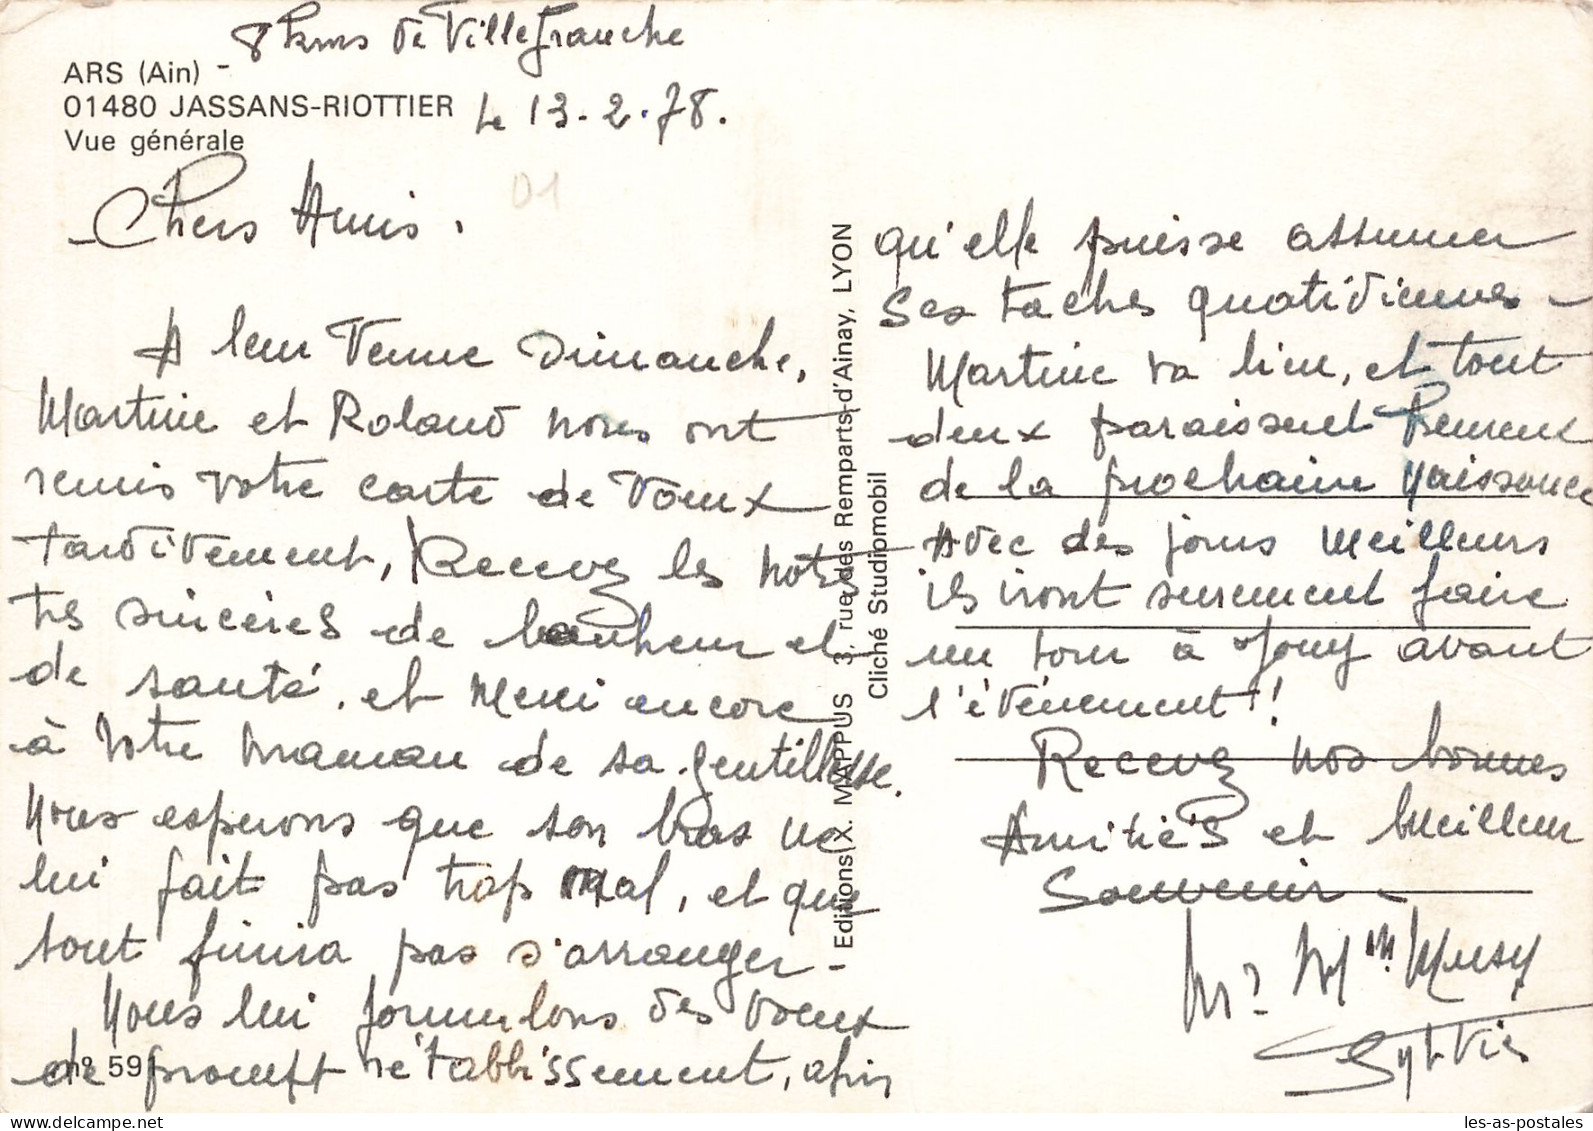 8 kms de Villefranche
ARS (Ain) -
01480 JASSANS-RIOTTIER
Le 13-2.78.
Vue générale
01
Chers Amis.
A leur venue Dimanche,
Martine et Roland nous ont
remis votre carte de voeux
tardivement, Recevez les notres
très sincères de bonheur et
de santé. et Merci encore
à votre maman de sa gentillesse.
Nous esperons que son bras ne
lui fait pas trop mal, et que
tout finira pas s'arranger -
Nous lui formulons des voeux
de prompt rétablissement, afin
n° 59
Editions X. MAPPUS 3, rue des Remparts-d'Ainay, LYON
Cliché Studiomobil
qu'elle puisse assumer
ses taches quotidiennes -
Martine va bien, et tout
deux paraissent heureux
de la prochaine naissance
Avec des jours meilleurs
ils iront surement faire
un tour à Jouy avant
l'évènement!
Recevez nos bonnes
Amitiés et meilleur
Souvenir -
Mr? Mme Musy
Sylvie
les-as-postales